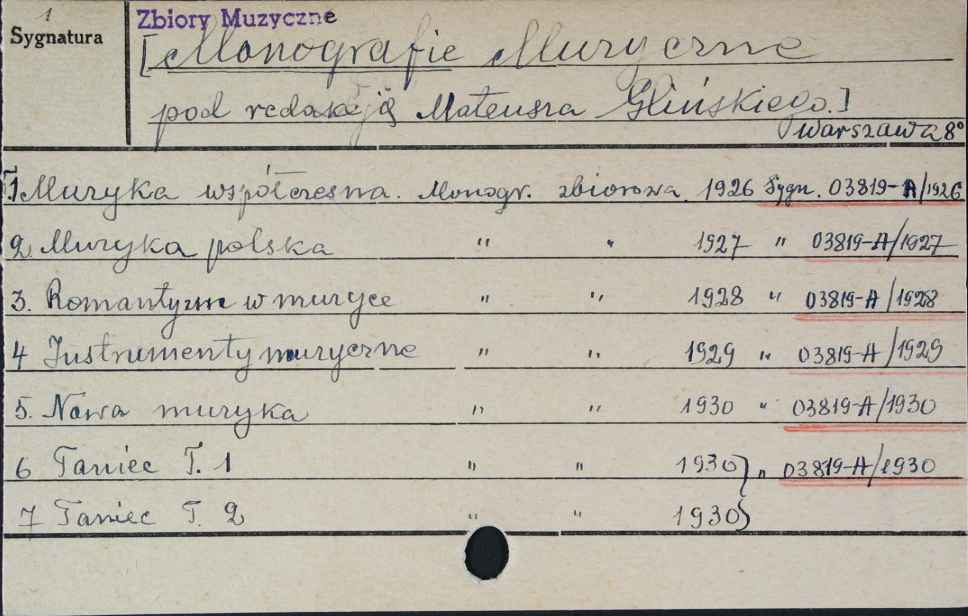 1
Sygnatura
Zbiory Muzyczne
[Monografie Muzyczne
pod redakcją Mateusza Glińskiego.]
Warszawa 8°
1 Muzyka współczesna. Monogr. zbiorowa. 1926 Sygn. 03819-A/1926
2 Muzyka polska " " 1927 " 03819-A/1927
3. Romantyzm w muzyce " " 1928 " 03819-A/1928
4 Instrumenty muzyczne " " 1929 " 03819-A/1929
5. Nowa muzyka " " 1930 " 03819-A/1930
6 Taniec T. 1 " " 1930} " 03819-A/1930
7 Taniec T. 2 " " 1930}